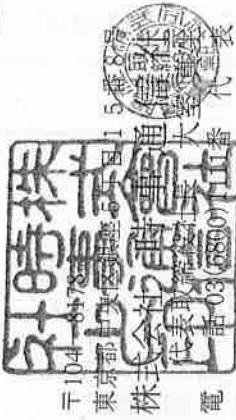 〒104-8178
東京都中央区銀座5丁目15番8号
株式会社 時事通信社
代表取締役社長 大室真生
電話 03(6800)1111番 代表